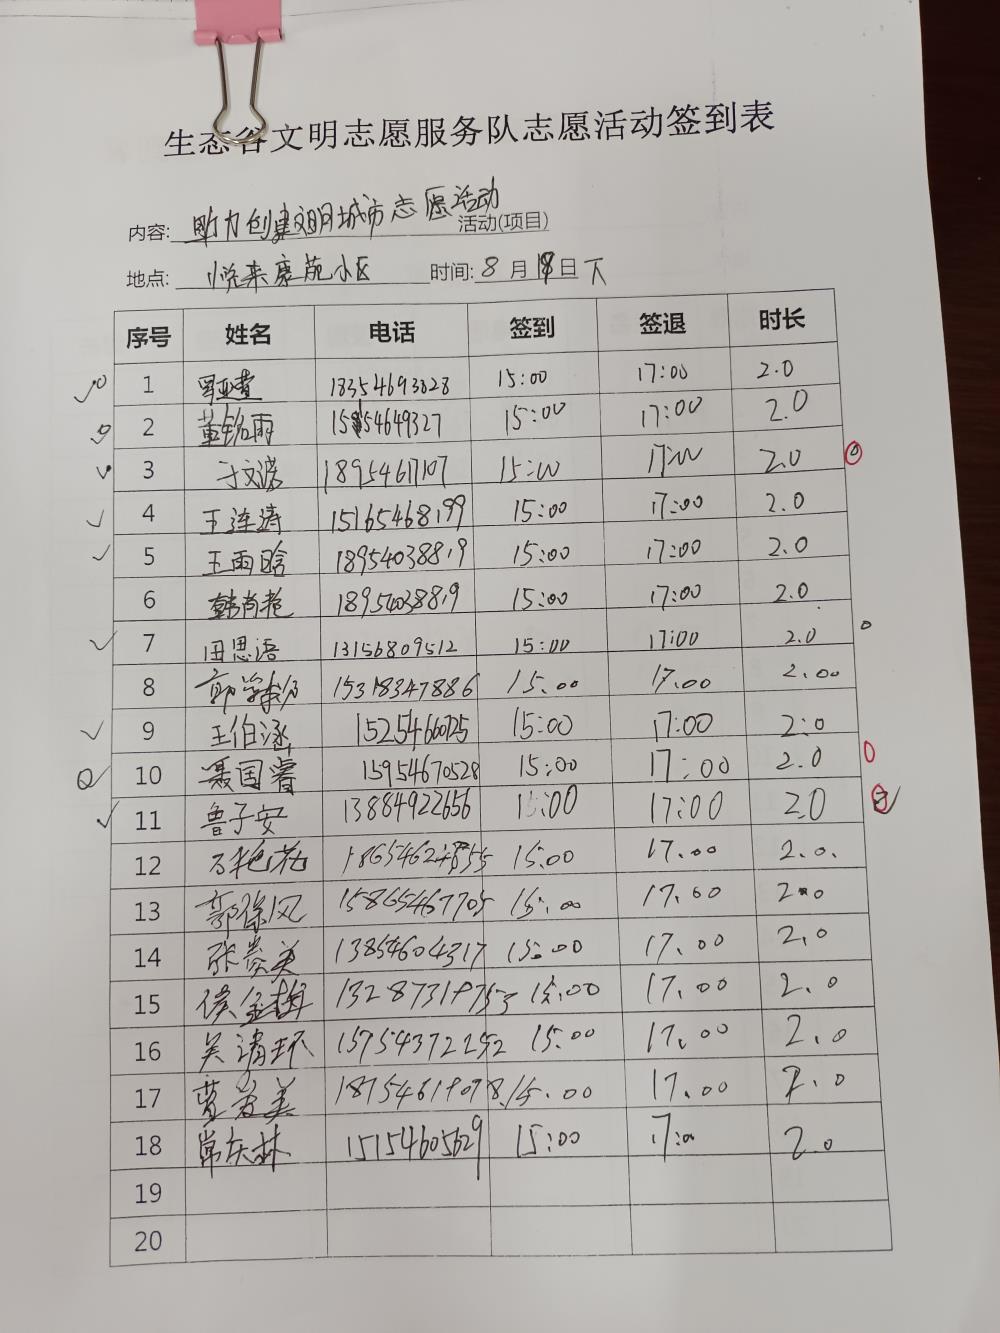 生态谷文明志愿服务队志愿活动签到表
内容: 助力创建文明城市志愿活动 活动(项目)
地点: 悦来康苑小区 时间: 8 月 18 日 下
序号 姓名 电话 签到 签退 时长
1 18354693828 15:00 17:00 2.0
2 董铭雨 15954649327 15:00 17:00 2.0
3 于文涛 18954617107 15:00 17:00 2.0
4 王连涛 15165468199 15:00 17:00 2.0
5 王雨晗 18954038819 15:00 17:00 2.0
6 韩肖艳 18954038819 15:00 17:00 2.0
7 田思语 13156809512 15:00 17:00 2.0
8 15318347886 15.00 17.00 2.00
9 王伯涵 15254660725 15:00 17:00 2:0
10 聂国睿 15954670528 15:00 17:00 2.0
11 鲁子安 13884922656 15:00 17:00 20
12 万艳花 15:00 17.00 2.0.
13 郭保风 15865467705 15:00 17.00 2.0
14 张爱美 13854604317 15:00 17.00 2.0
15 侯金梅 13287319753 15:00 17.00 2.0
16 吴清环 15754372252 15:00 17.00 2.0
17 18754619078 15.00 17.00 2.0
18 常庆林 15154605629 15:00 17:00 2.0
19
20